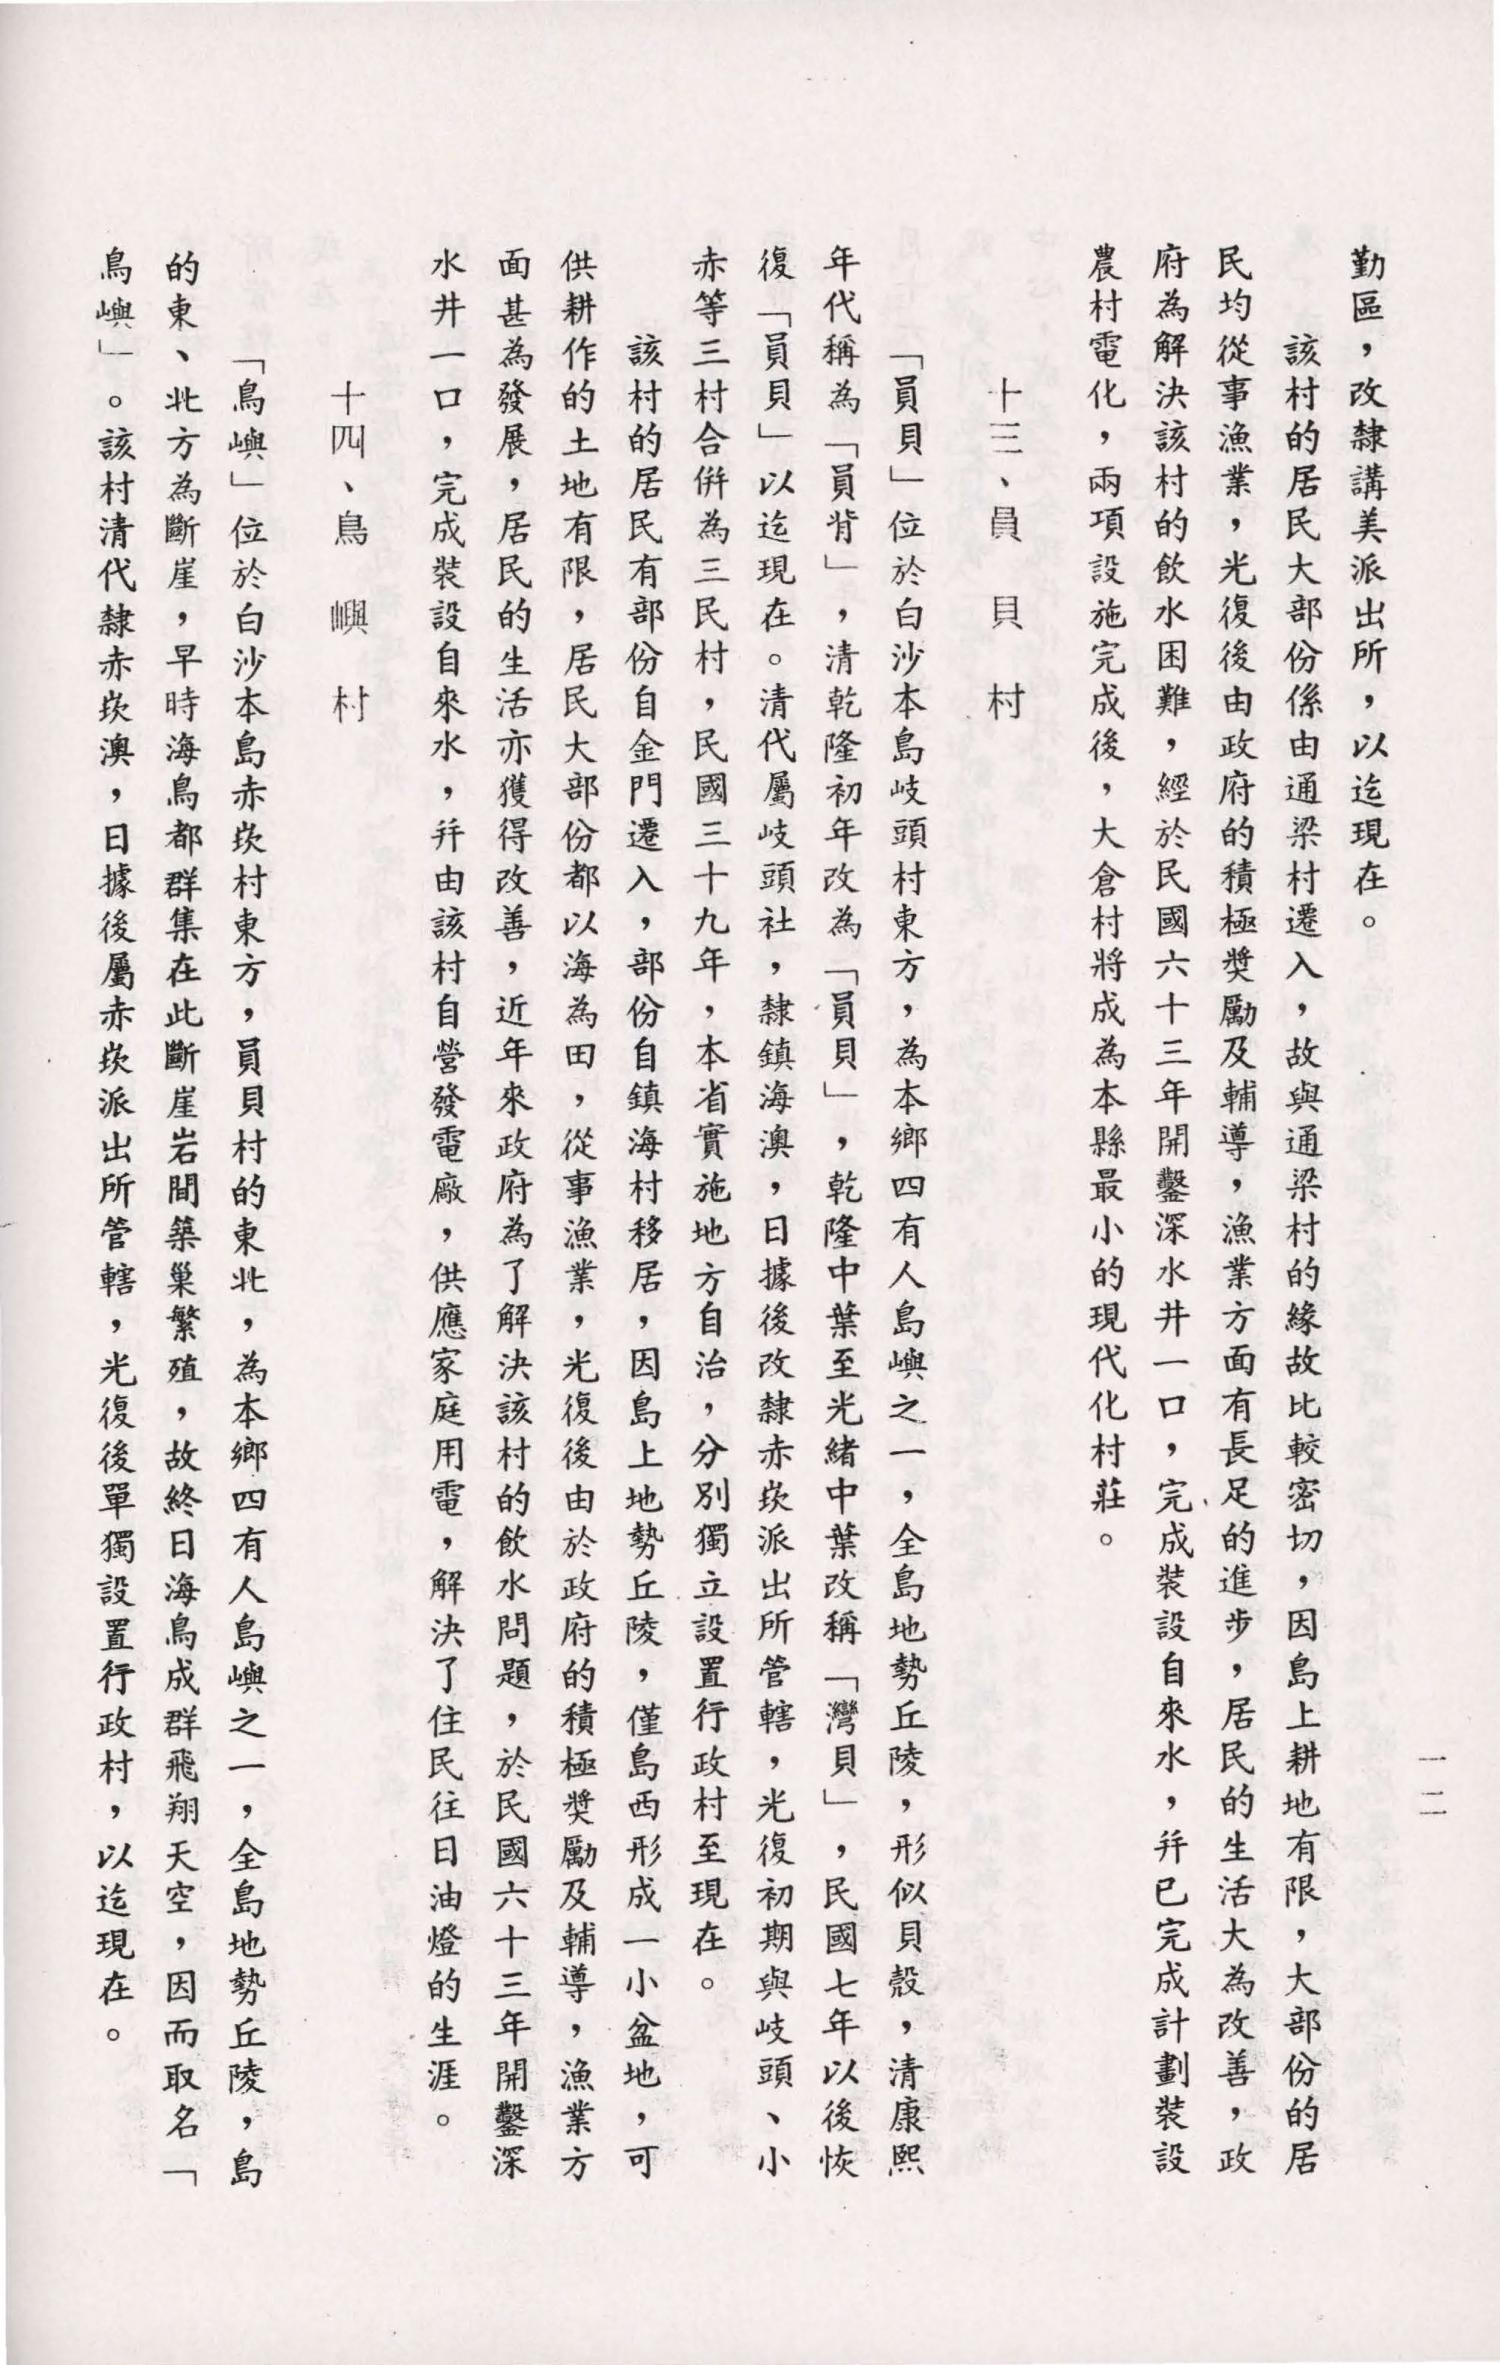 一二
勤區，改隸講美派出所，以迄現在。
該村的居民大部份係由通梁村遷入，故與通梁村的緣故比較密切，因島上耕地有限，大部份的居
民均從事漁業，光復後由政府的積極獎勵及輔導，漁業方面有長足的進步，居民的生活大為改善，政
府為解決該村的飲水困難，經於民國六十三年開鑿深水井一口，完成裝設自來水，幷已完成計劃裝設
農村電化，兩項設施完成後，大倉村將成為本縣最小的現代化村莊。
十三、員貝村
「員貝」位於白沙本島岐頭村東方，為本鄉四有人島嶼之一，全島地勢丘陵，形似貝殼，清康熙
年代稱為「員背」，清乾隆初年改為「員貝」，乾隆中葉至光緒中葉改稱「灣貝」，民國七年以後恢
復「員貝」以迄現在。清代屬岐頭社，隸鎮海澳，日據後改隸赤崁派出所管轄，光復初期與岐頭、小
赤等三村合併為三民村，民國三十九年，本省實施地方自治，分別獨立設置行政村至現在。
該村的居民有部份自金門遷入，部份自鎮海村移居，因島上地勢丘陵，僅島西形成一小盆地，可
供耕作的土地有限，居民大部份都以海為田，從事漁業，光復後由於政府的積極獎勵及輔導，漁業方
面甚為發展，居民的生活亦獲得改善，近年來政府為了解決該村的飲水問題，於民國六十三年開鑿深
水井一口，完成裝設自來水，幷由該村自營發電廠，供應家庭用電，解決了住民往日油燈的生涯。
十四、鳥嶼村
「鳥嶼」位於白沙本島赤崁村東方，員貝村的東北，為本鄉四有人島嶼之一，全島地勢丘陵，島
的東、北方為斷崖，早時海鳥都群集在此斷崖岩間築巢繁殖，故終日海鳥成群飛翔天空，因而取名「
鳥嶼」。該村清代隸赤崁澳，日據後屬赤崁派出所管轄，光復後單獨設置行政村，以迄現在。